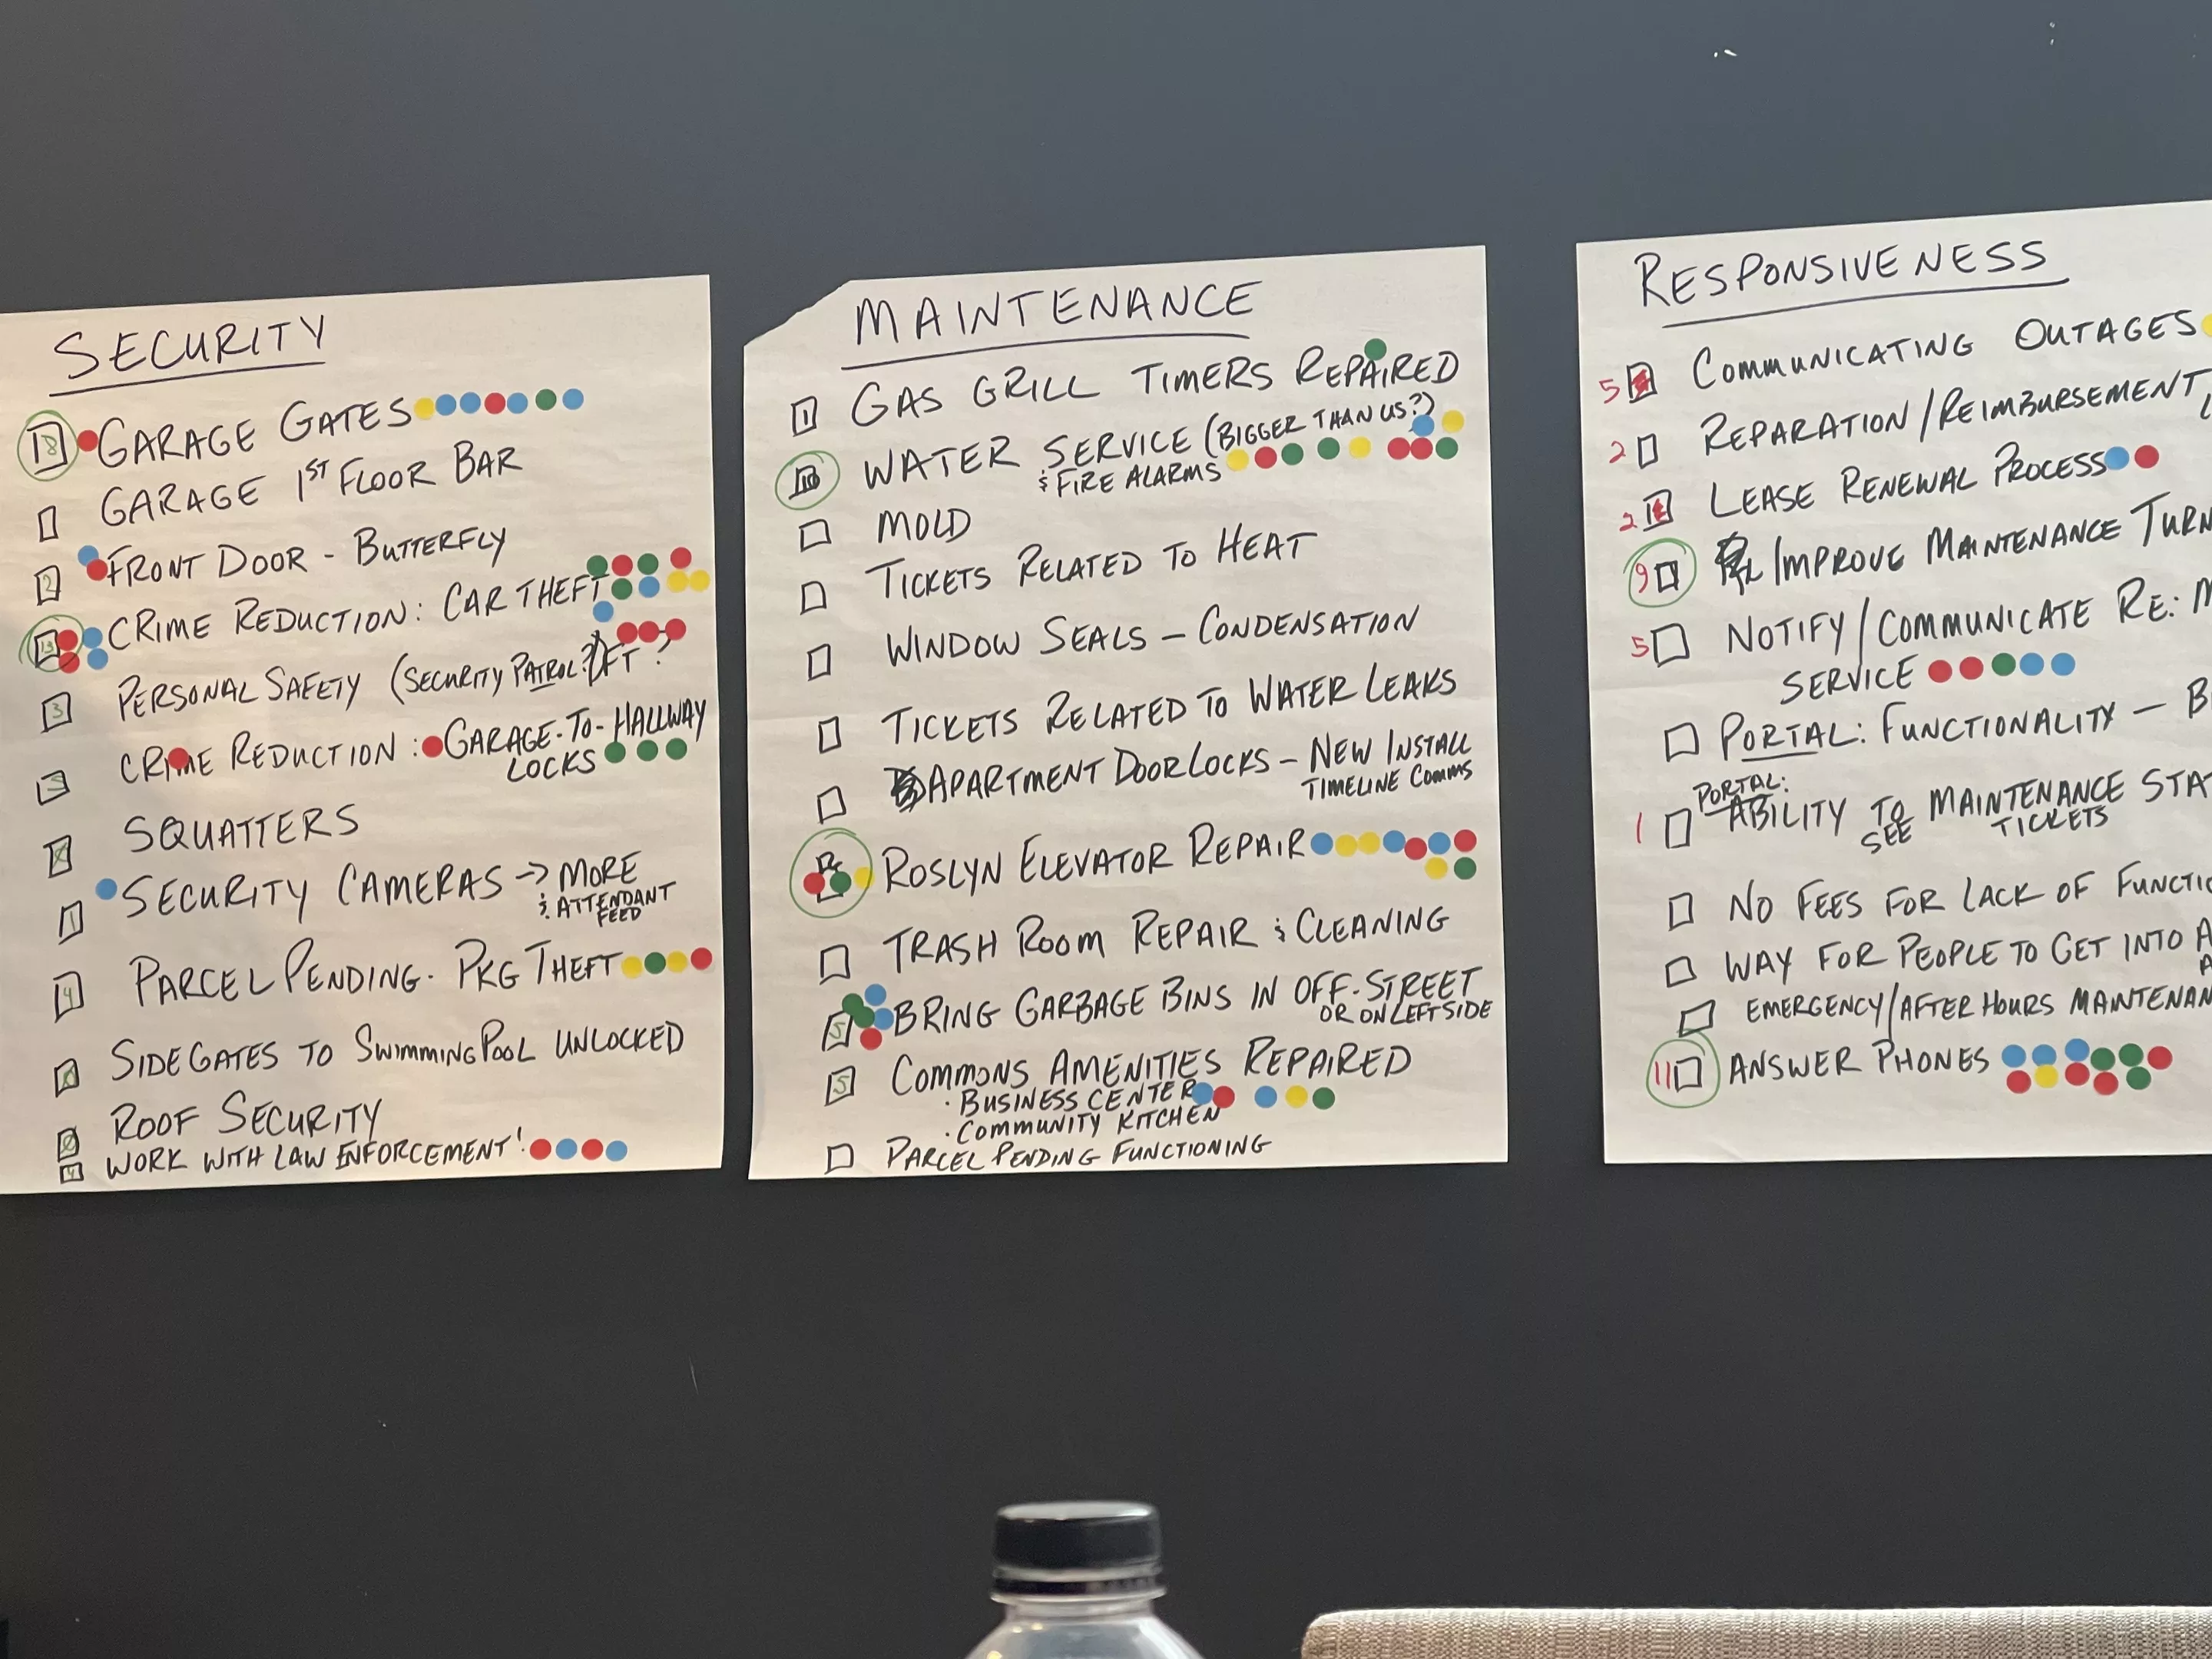 SECURITY
8 GARAGE GATES
GARAGE 1ST FLOOR BAR
2 FRONT DOOR - BUTTERFLY
13 CRIME REDUCTION: CAR THEFT
3 PERSONAL SAFETY (SECURITY PATROL?) FT?
5 CRIME REDUCTION: GARAGE-TO-HALLWAY
LOCKS
SQUATTERS
1 SECURITY CAMERAS → MORE
& ATTENDANT
FEED
4 PARCEL PENDING - PKG THEFT
0 SIDE GATES TO SWIMMING POOL UNLOCKED
0 ROOF SECURITY
4 WORK WITH LAW ENFORCEMENT!
MAINTENANCE
1 GAS GRILL TIMERS REPAIRED
10 WATER SERVICE (BIGGER THAN US?)
& FIRE ALARMS
MOLD
TICKETS RELATED TO HEAT
WINDOW SEALS - CONDENSATION
TICKETS RELATED TO WATER LEAKS
APARTMENT DOOR LOCKS - NEW INSTALL
TIMELINE COMMS
ROSLYN ELEVATOR REPAIR
TRASH ROOM REPAIR & CLEANING
5 BRING GARBAGE BINS IN OFF-STREET
OR ON LEFT SIDE
5 COMMONS AMENITIES REPAIRED
· BUSINESS CENTER
· COMMUNITY KITCHEN
PARCEL PENDING FUNCTIONING
RESPONSIVENESS
5 COMMUNICATING OUTAGES
2 REPARATION/REIMBURSEMENT
2 LEASE RENEWAL PROCESS
9 IMPROVE MAINTENANCE TURN
5 NOTIFY/COMMUNICATE RE: M
SERVICE
PORTAL: FUNCTIONALITY - B
PORTAL:
1 ABILITY TO SEE MAINTENANCE STA
TICKETS
NO FEES FOR LACK OF FUNCTIO
WAY FOR PEOPLE TO GET INTO A
EMERGENCY/AFTER HOURS MAINTENAN
11 ANSWER PHONES